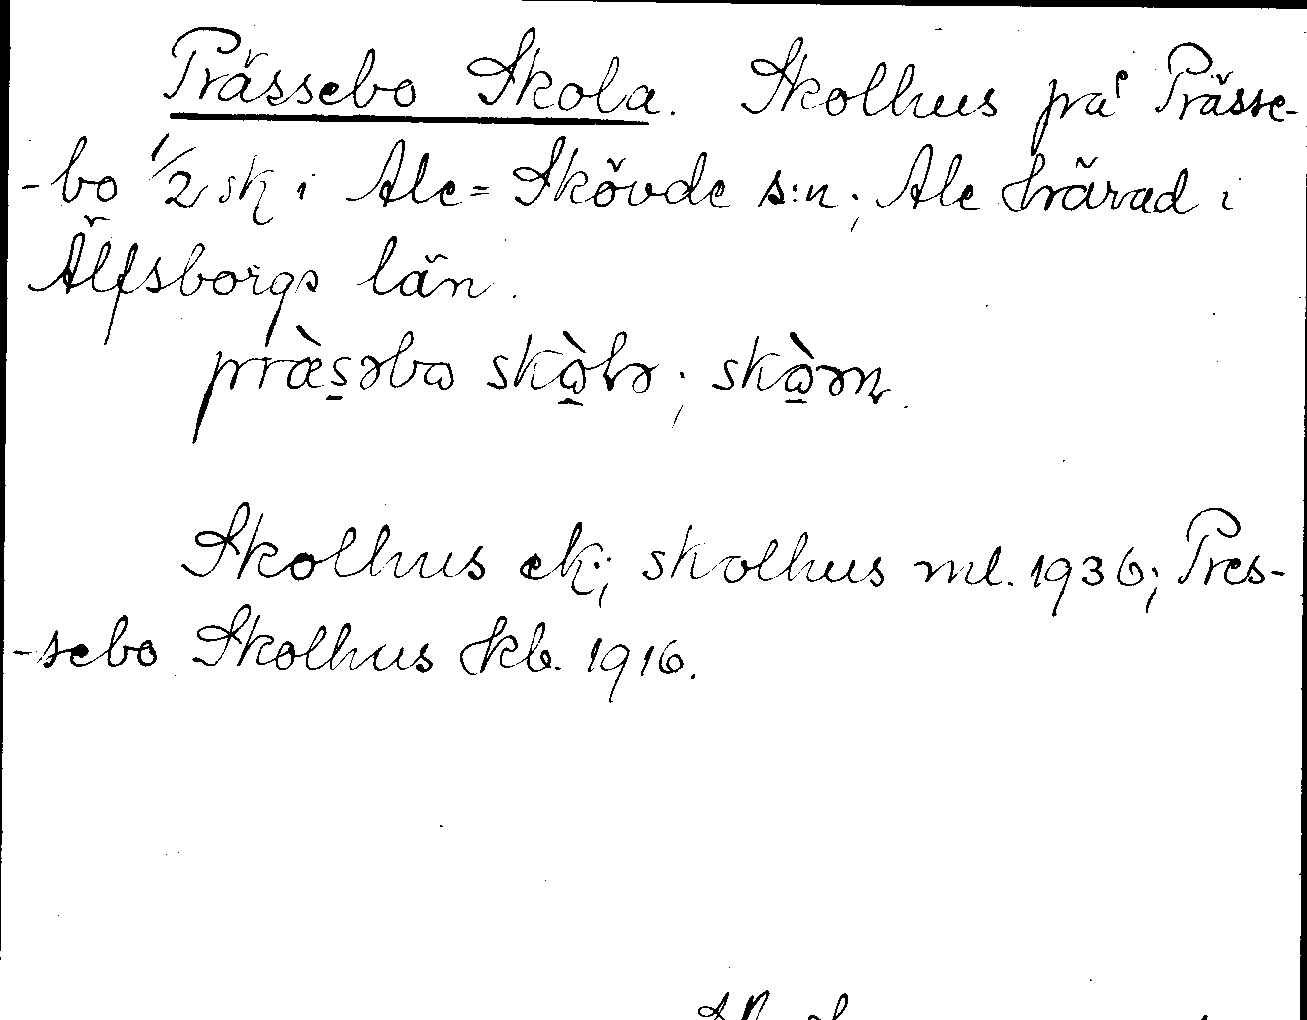 Prässebo Skola. Skolhus på Prässe-
-bo 1/2 sk i Ale-Skövde s:n; Ale härad i
Älfsborgs län.
præ̀s̠əbɷ skɷ̠̀lə; skɷ̠̀ən.
Skolhus ek; skolhus ml. 1936; Pres-
-sebo Skolhus Kkb. 1916.